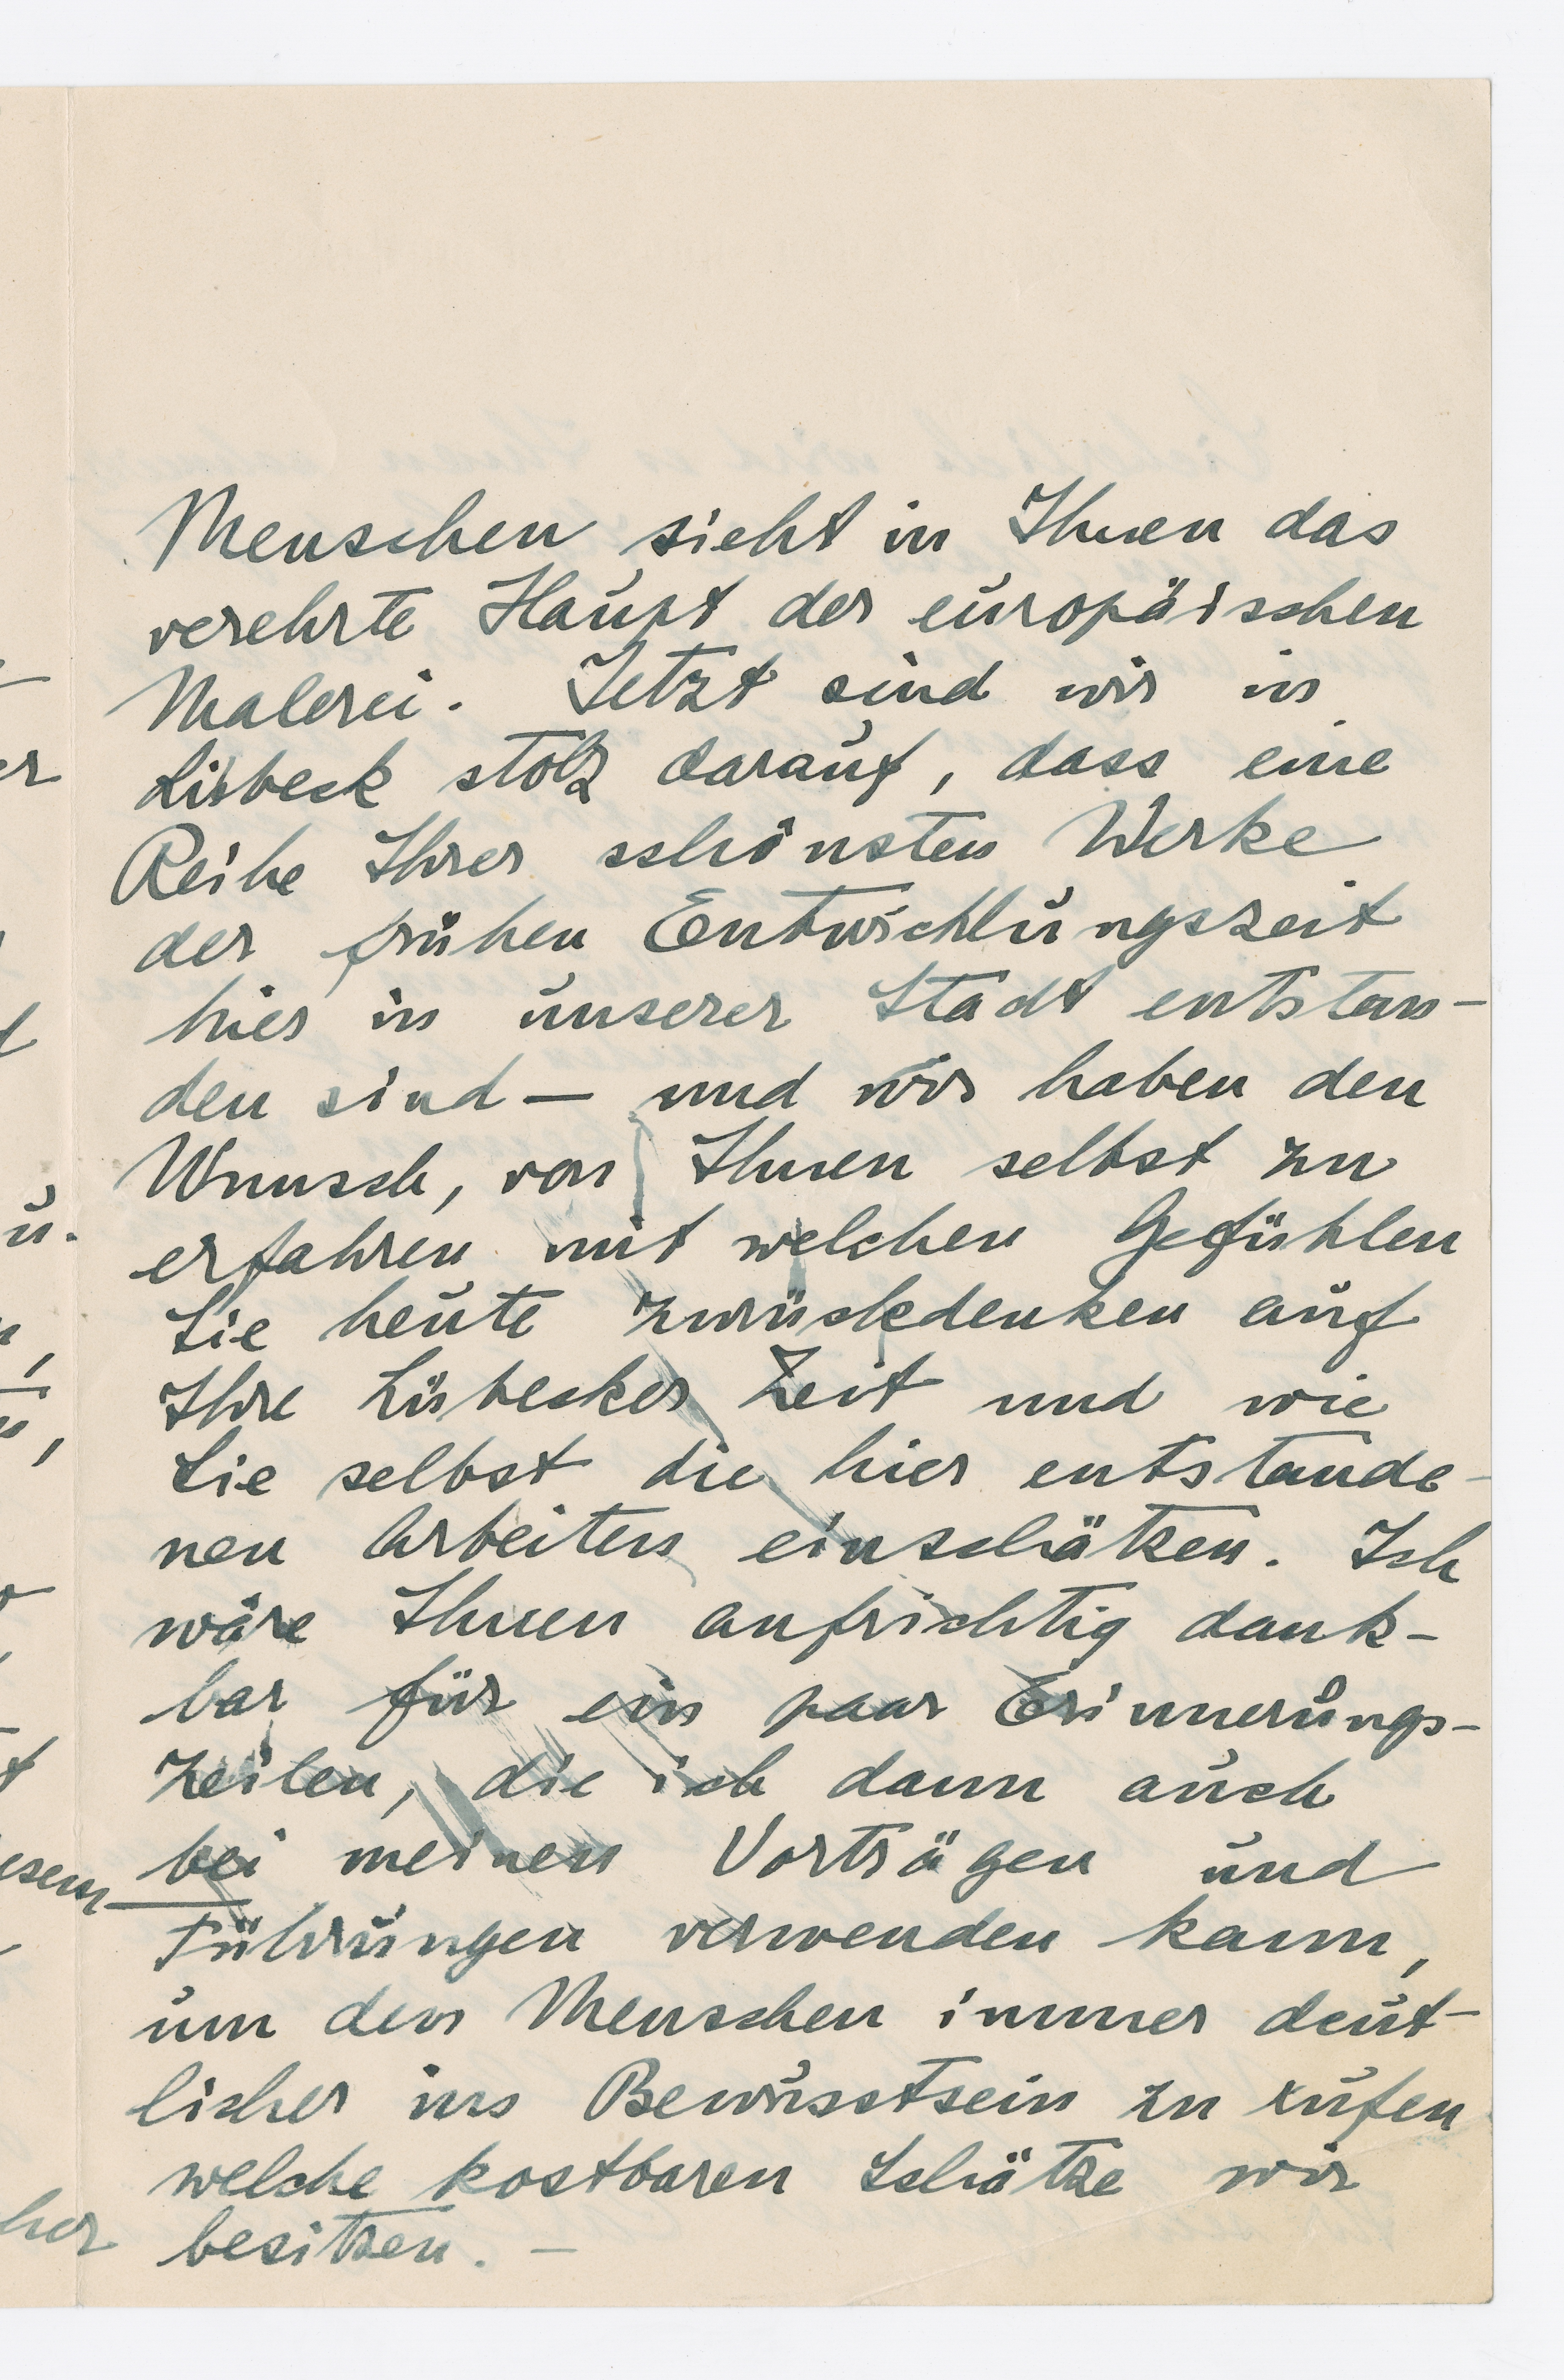 Menschen sieht in Ihnen das
verehrte Haupt der europäischen
Malerei. Jetzt sind wir in
Lübeck stolz darauf, dass eine
Reihe Ihrer schönsten Werke
der frühen Entwicklungszeit
hier in unserer Stadt entstan-
den sind — und wir haben den
Wunsch, von Ihnen selbst zu
erfahren mit welchen Gefühlen
Sie heute zurückdenken auf
Ihre Lübecker Zeit und wie
Sie selbst die hier entstande-
nen Arbeiten einschätzen. Ich
wäre Ihnen aufrichtig dank-
bar für ein paar Erinnerungs-
zeilen, die ich dann auch
bei meinen Vorträgen und
Führungen verwenden kann,
um den Menschen immer deut-
licher ins Bewusstsein zu rufen
welche kostbaren Schätze wir
besitzen. —